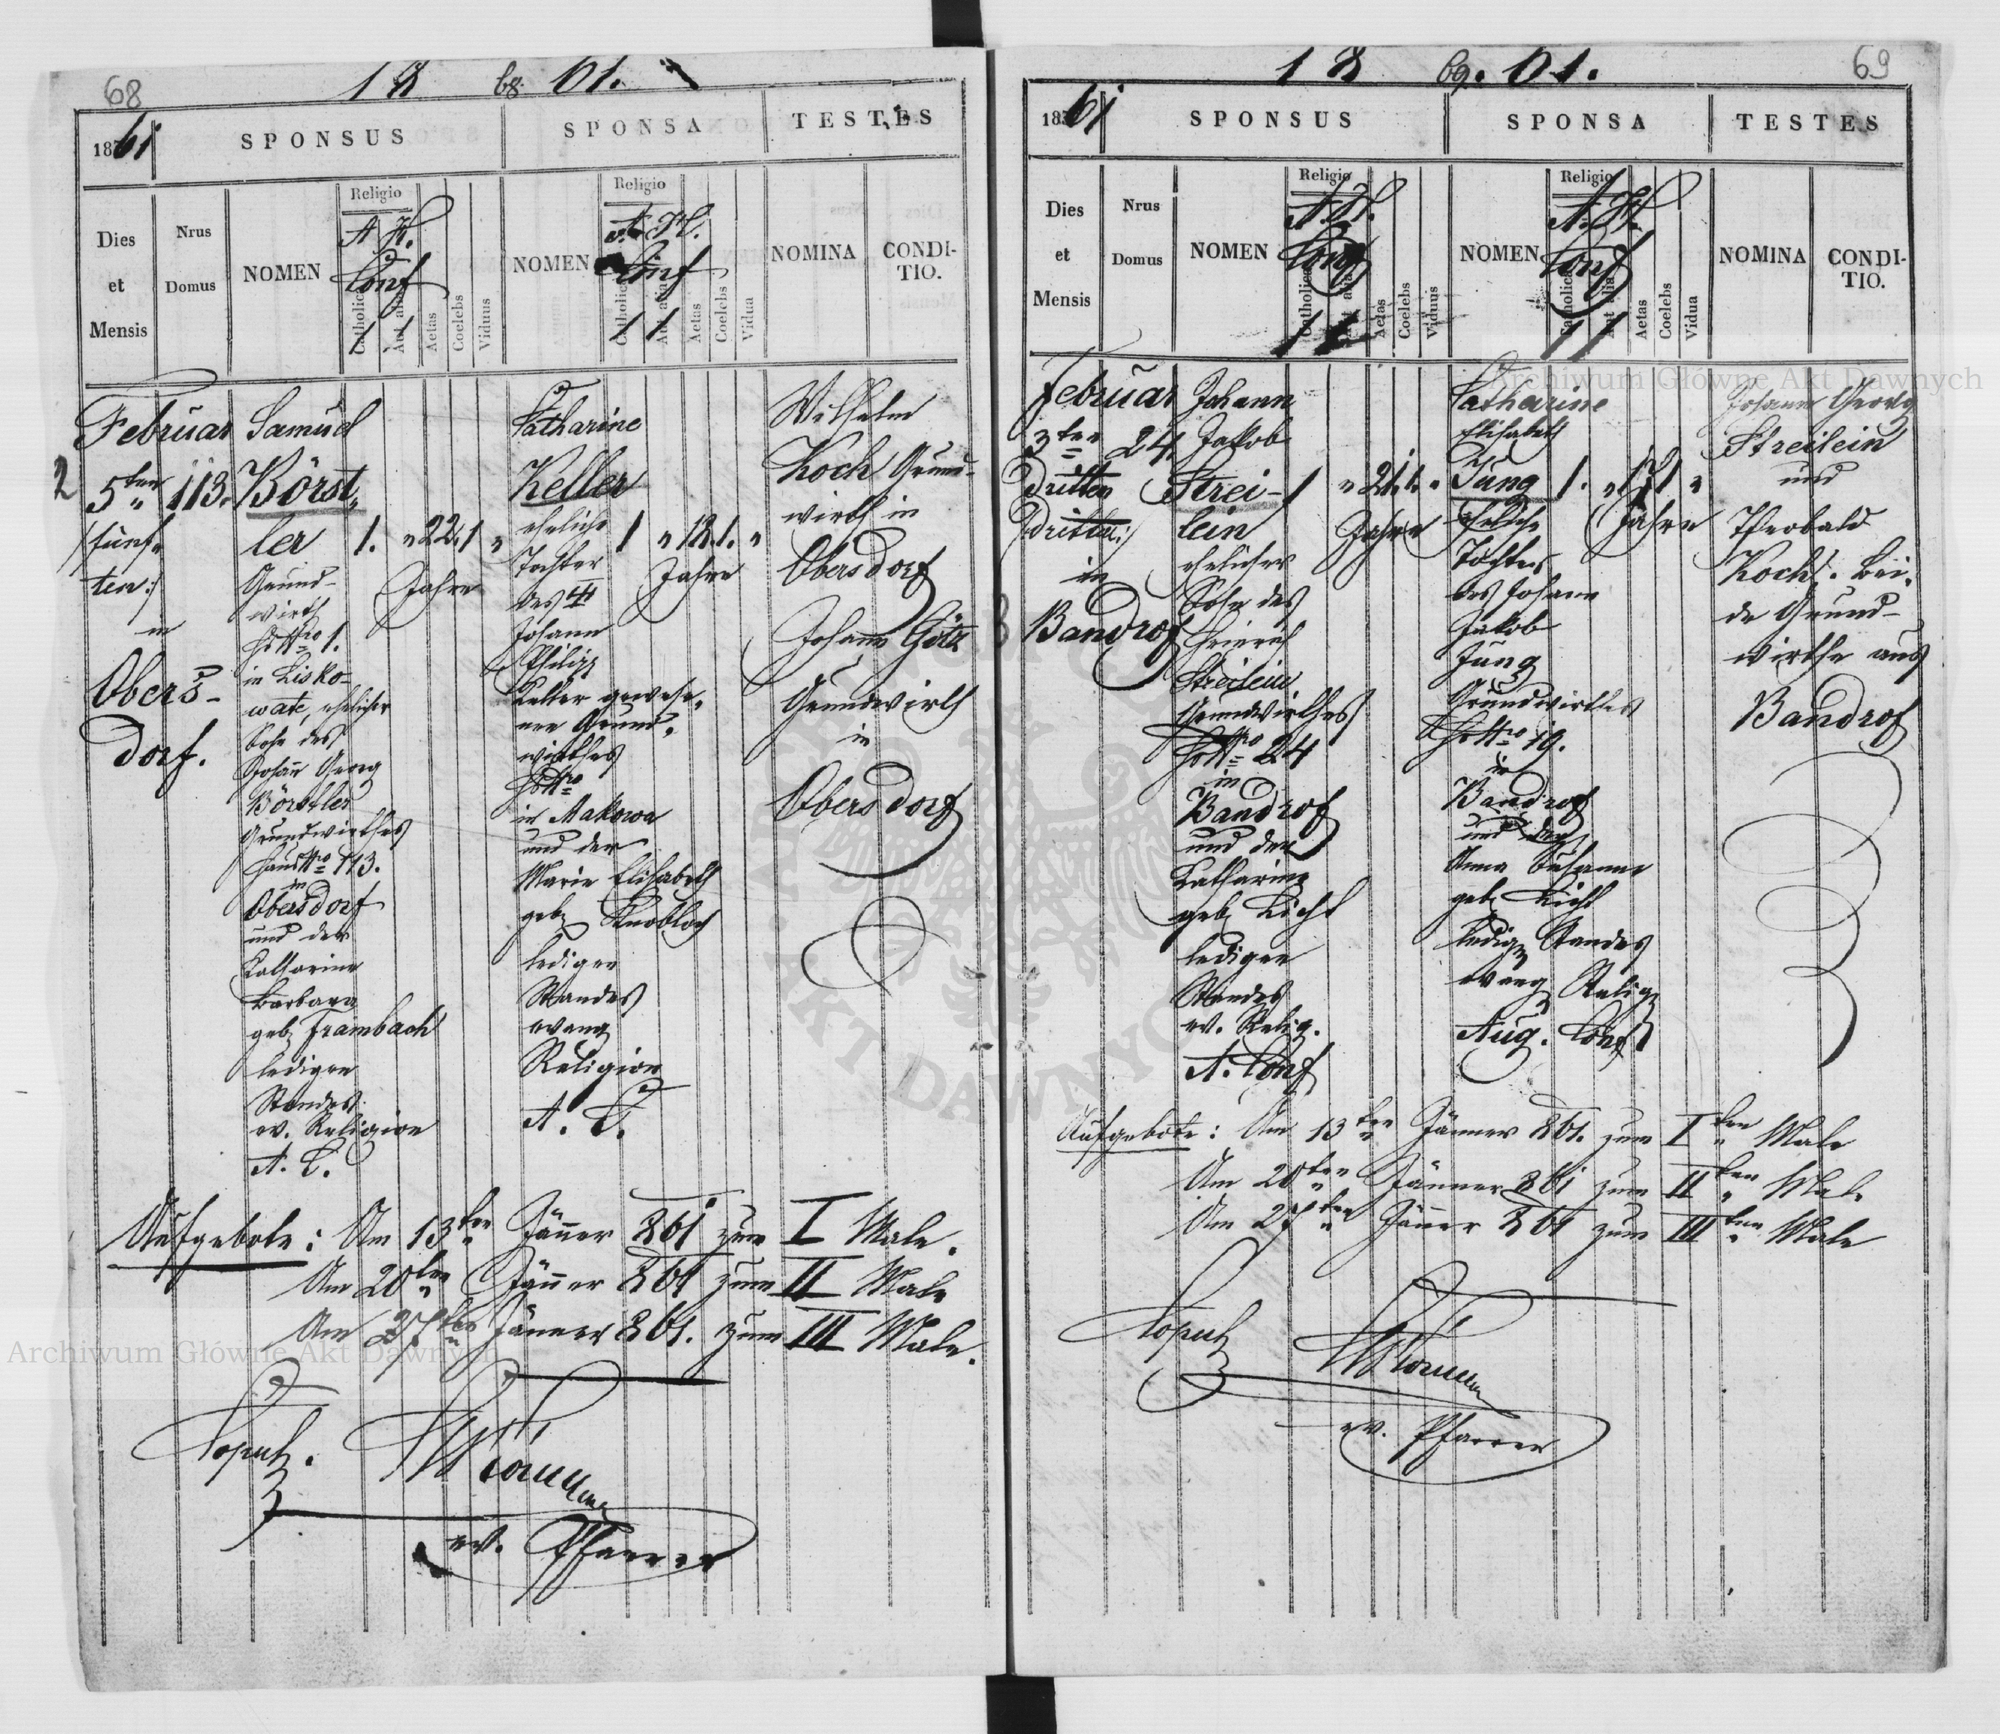 68
18 68. 61.
1861
SPONSUS
SPONSA
TESTES
Dies
et
Mensis
Nrus
Domus
NOMEN
Religio
A. K.
Conf
Catholica
Aut alia
1 1
Aetas
Coelebs
Viduus
NOMEN
Religio
A. K.
Conf
Catholica
Aut alia
1 1
Aetas
Coelebs
Vidua
NOMINA
CONDI-
TIO.
2
Februar
5ten
/:fünf-
ten:/
in
Obers-
dorf.
113.
Samuel
Börst-
ler
Grund-
wirth
Hs Nro 1.
in Lisko-
wate, ehelicher
Sohn des
Johann Georg
Börstler
Grundwirthes
Haus Nro 113.
in
Obersdorf
und der
Katharine
Barbara
geb. Frambach
ledigen
Standes
ev. Religion
A. C.
1. " 22. 1 "
Jahre
Catharine
Keller
eheliche
Tochter
des
Johann
Philipp
Keller gewese-
nen Grund-
wirthes
Hs Nro
in Makowa
und der
Marie Elisabeth
geb. Knobloch
ledigen
Standes
evang
Religion
A. C.
1 " 18. 1. "
Jahre
Wilhelm
Koch Grund-
wirth in
Obersdorf
Johann Götz
Grundwirth
in
Obersdorf
Aufgebote: Am 13ten Jänner 861 zum I Male.
Am 20ten Jänner 861 zum II Male
Am 27ten Jänner 861. zum III Male.
Copul.
ev. Pfarrer
69
18 69. 61.
1861
SPONSUS
SPONSA
TESTES
Dies
et
Mensis
Nrus
Domus
NOMEN
Religio
A. K.
Conf
Catholica
Aut alia
1 1
Aetas
Coelebs
Viduus
NOMEN
Religio
A. K.
Conf
Catholica
Aut alia
1 1
Aetas
Coelebs
Vidua
NOMINA
CONDI-
TIO.
3
Februar
3ten
dritten
/dritten:/
in
Bandrof
24.
Johann
Jakob
Strei-
lein
ehelicher
Sohn des
Heinrich
Streilein
Grundwirthes
Hs Nro 24
in
Bandrof
und der
Katharine
geb. Licht
ledigen
Standes
ev. Relig.
A. Conf
1 " 21. 1. "
Jahre
Catharine
Elisabeth
Jung
eheliche
Tochter
des Johann
Jakob
Jung
Grundwirthes
Hs Nro 19.
in
Bandrof
und der
Anna Susanne
geb. Licht
ledig. Standes
evang. Relig.
Aug. Conf
1. " 17 1 "
Jahre
Johann Georg
Streilein
und
Theobald
Koch. Bei-
de Grund-
wirthe aus
Bandrof
Aufgebote: Am 13ten Jänner 861. zum Iten Male
Am 20ten Jänner 861 zum IIten Male
Am 27ten Jänner 861 zum IIIten Male
Copul.
ev. Pfarrer
Archiwum Główne Akt Dawnych
Archiwum Główne Akt Dawnych
AKT DAWNYCH